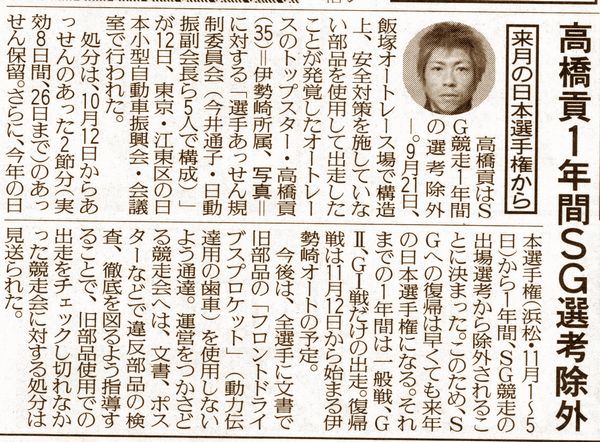 高橋貢1年間SG選考除外
来月の日本選手権から
　高橋貢はS
G競走1年間
の選考除外
―。9月21日、
飯塚オートレース場で構造
上、安全対策を施していな
い部品を使用して出走した
ことが発覚したオートレー
スのトップスター・高橋貢
(35)＝伊勢崎所属、写真＝
に対する「選手あっせん規
制委員会(今井通子・日動
振副会長ら5人で構成)」
が12日、東京・江東区の日
本小型自動車振興会・会議
室で行われた。
　処分は、10月12日からあ
っせんのあった2節分(実
効8日間、26日まで)のあっ
せん保留。さらに、今年の日
本選手権(浜松・11月1〜5
日)から1年間、SG競走の
出場選考から除外されるこ
とに決まった。このため、S
Gへの復帰は早くても来年
の日本選手権になる。それ
までの1年間は一般戦、G
Ⅱ、GⅠ戦だけの出走。復帰
戦は11月12日から始まる伊
勢崎オートの予定。
　今後は、全選手に文書で
旧部品の「フロントドライ
ブスプロケット」(動力伝
達用の歯車)を使用しない
よう通達。運営をつかさど
る競走会へは、文書、ポス
ターなどで違反部品の検
査、徹底を図るよう指導す
ることで、旧部品使用での
出走をチェックし切れなか
った競走会に対する処分は
見送られた。